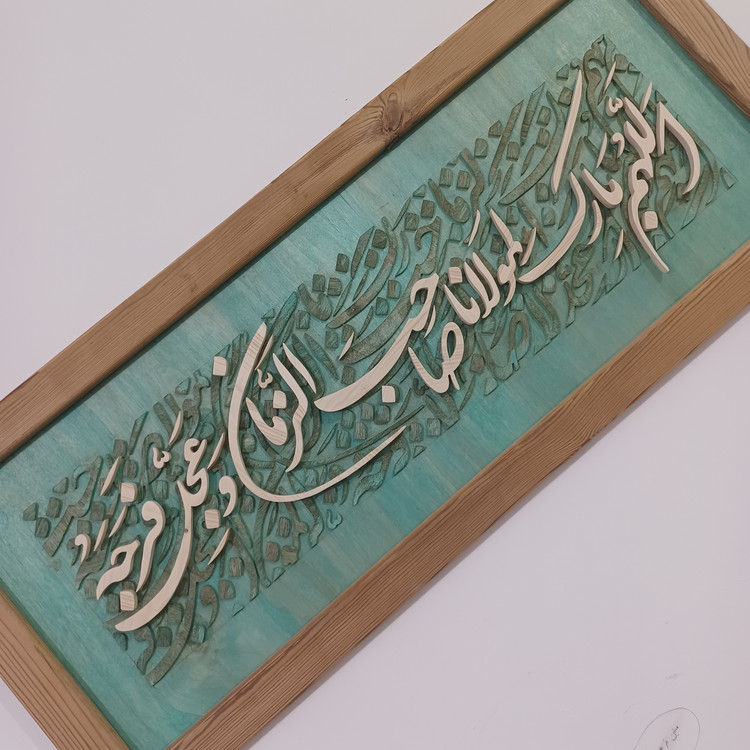 اللهم بارک لمولانا صاحب الزمان و عجل فرجه